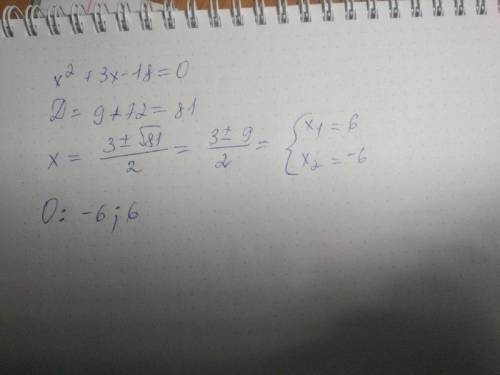 x² + 3x - 18 = 0
D = 9 + 72 = 81
x = (3 ± √81)/2 = (3 ± 9)/2 = { x₁ = 6
x₂ = -6
O: -6; 6